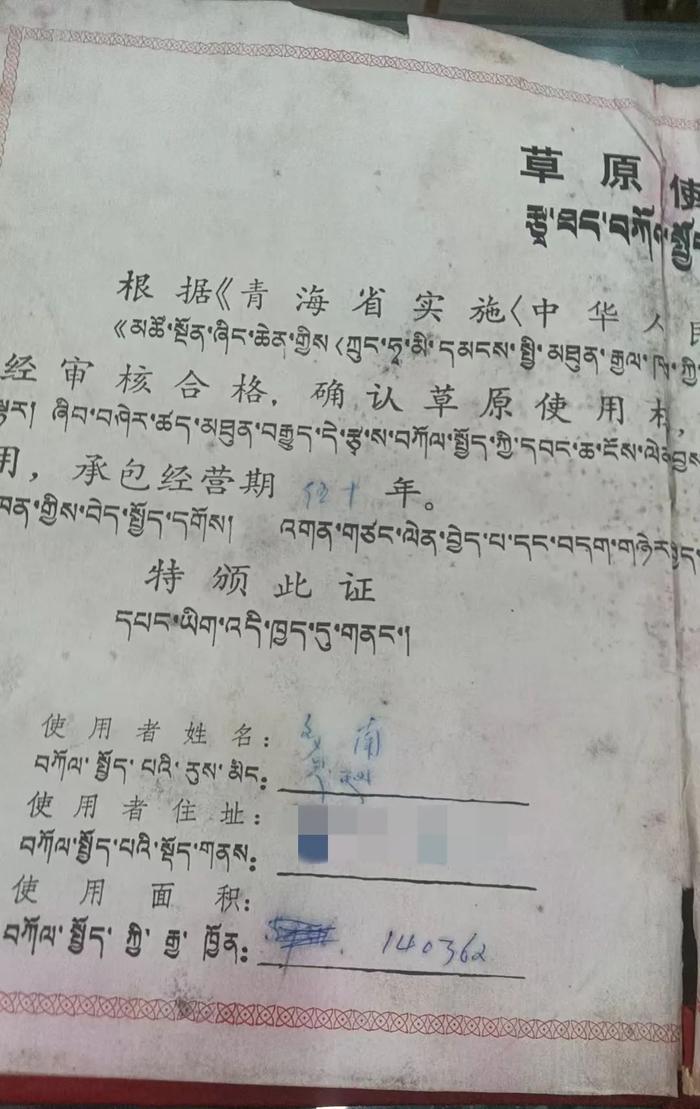 草原使
རྩྭ་ཐང་བཀོལ་སྤྱོད
根据《青海省实施〈中华人民
《མཚོ་སྔོན་ཞིང་ཆེན་གྱིས〈ཀྲུང་ཧྭ་མི་དམངས་སྤྱི་མཐུན་རྒྱལ་ཁབ་ཀྱི
经审核合格，确认草原使用权，
ལྟར། ཞིབ་བཤེར་ཚད་མཐུན་བརྒྱུད་དེ་རྩྭ་ས་བཀོལ་སྤྱོད་ཀྱི་དབང་ཆ་ངོས་ལེན་བྱས
用，承包经营期 伍十 年。
ཁན་གྱིས་བེད་སྤྱོད་དགོས། འགན་གཙང་ལེན་བྱེད་པ་དང་བདག་གཉེར་བྱེད་
特颁此证
དཔང་ཡིག་འདི་ཁྱད་དུ་གནང་།
使用者姓名： 南
བཀོལ་སྤྱོད་པའི་རུས་མིང：
使用者住址：
བཀོལ་སྤྱོད་པའི་སྡོད་གནས：
使用面积：
བཀོལ་སྤྱོད་ཀྱི་རྒྱ་ཁྱོན： 140362